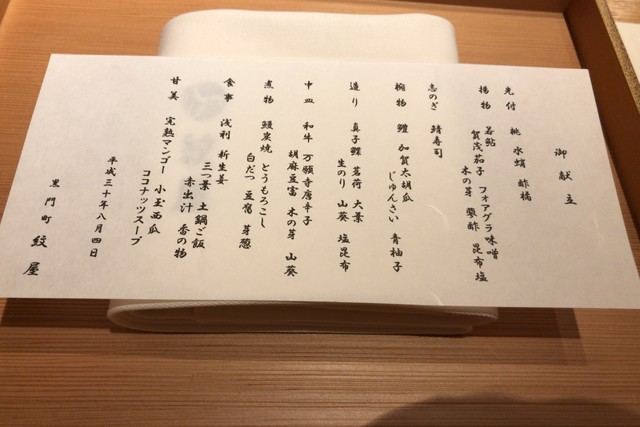 御献立
先付 桃 水蛸 酢橘
揚物 若鮎 フォアグラ味噌
賀茂茄子 木の芽 蓼酢 昆布塩
志のぎ 鯖寿司
椀物 鱧 加賀太胡瓜
じゅんさい 青柚子
造り 真子鰈 茗荷 大葉
生のり 山葵 塩昆布
中皿 和牛 万願寺唐辛子
胡麻豆富 木の芽 山葵
煮物 鰻炭焼 とうもろこし
白だつ 豆腐 芽葱
食事 浅利 新生姜
三つ葉 土鍋ご飯
赤出汁 香の物
甘美 完熟マンゴー 小玉西瓜
ココナッツスープ
平成三十年八月四日
黒門町 紋屋